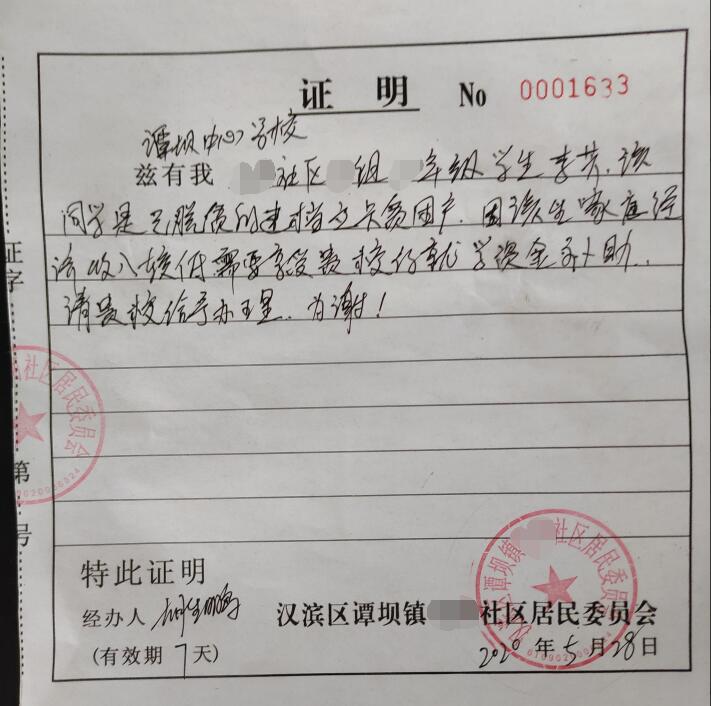 证 明 No 0001633
谭坝中心学校
兹有我 社区 组 年级学生李芳,该
同学是已脱贫的建档立卡贫困户.因该生家庭经
济收入较低,需要享受贵校的就学资金补助.
请贵校给予办理.为谢!
证字
第
号
社区居民委员会
特此证明
经办人
汉滨区谭坝镇 社区居民委员会
(有效期7天)
2020年5月28日
谭坝镇 社区居民委员会